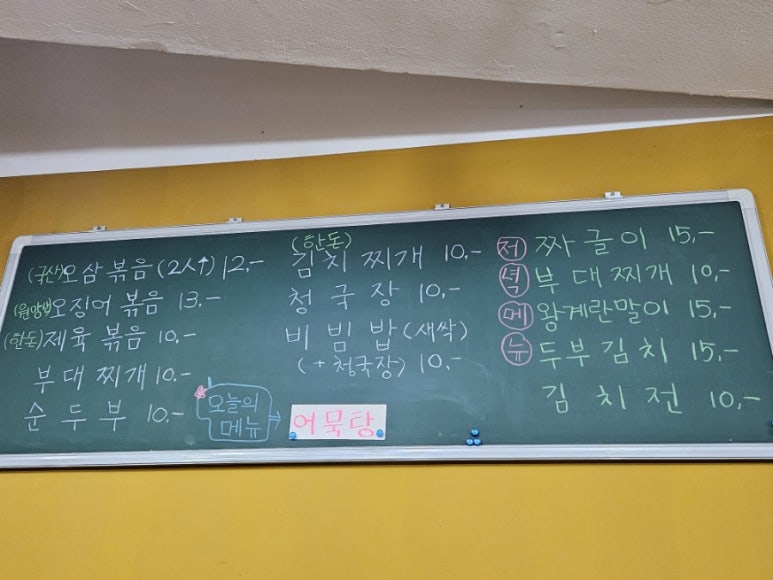 (국산)오삼볶음(2人↑) 12,-
오징어 볶음 13,-
(한돈)제육 볶음 10,-
부대찌개 10,-
순두부 10,-
오늘의
메뉴 →
어묵탕
(한돈)
김치찌개 10,-
청국장 10,-
비빔밥(새싹)
(+청국장) 10,-
저녁메뉴
짜글이 15,-
부대찌개 10,-
왕계란말이 15,-
두부김치 15,-
김치전 10,-